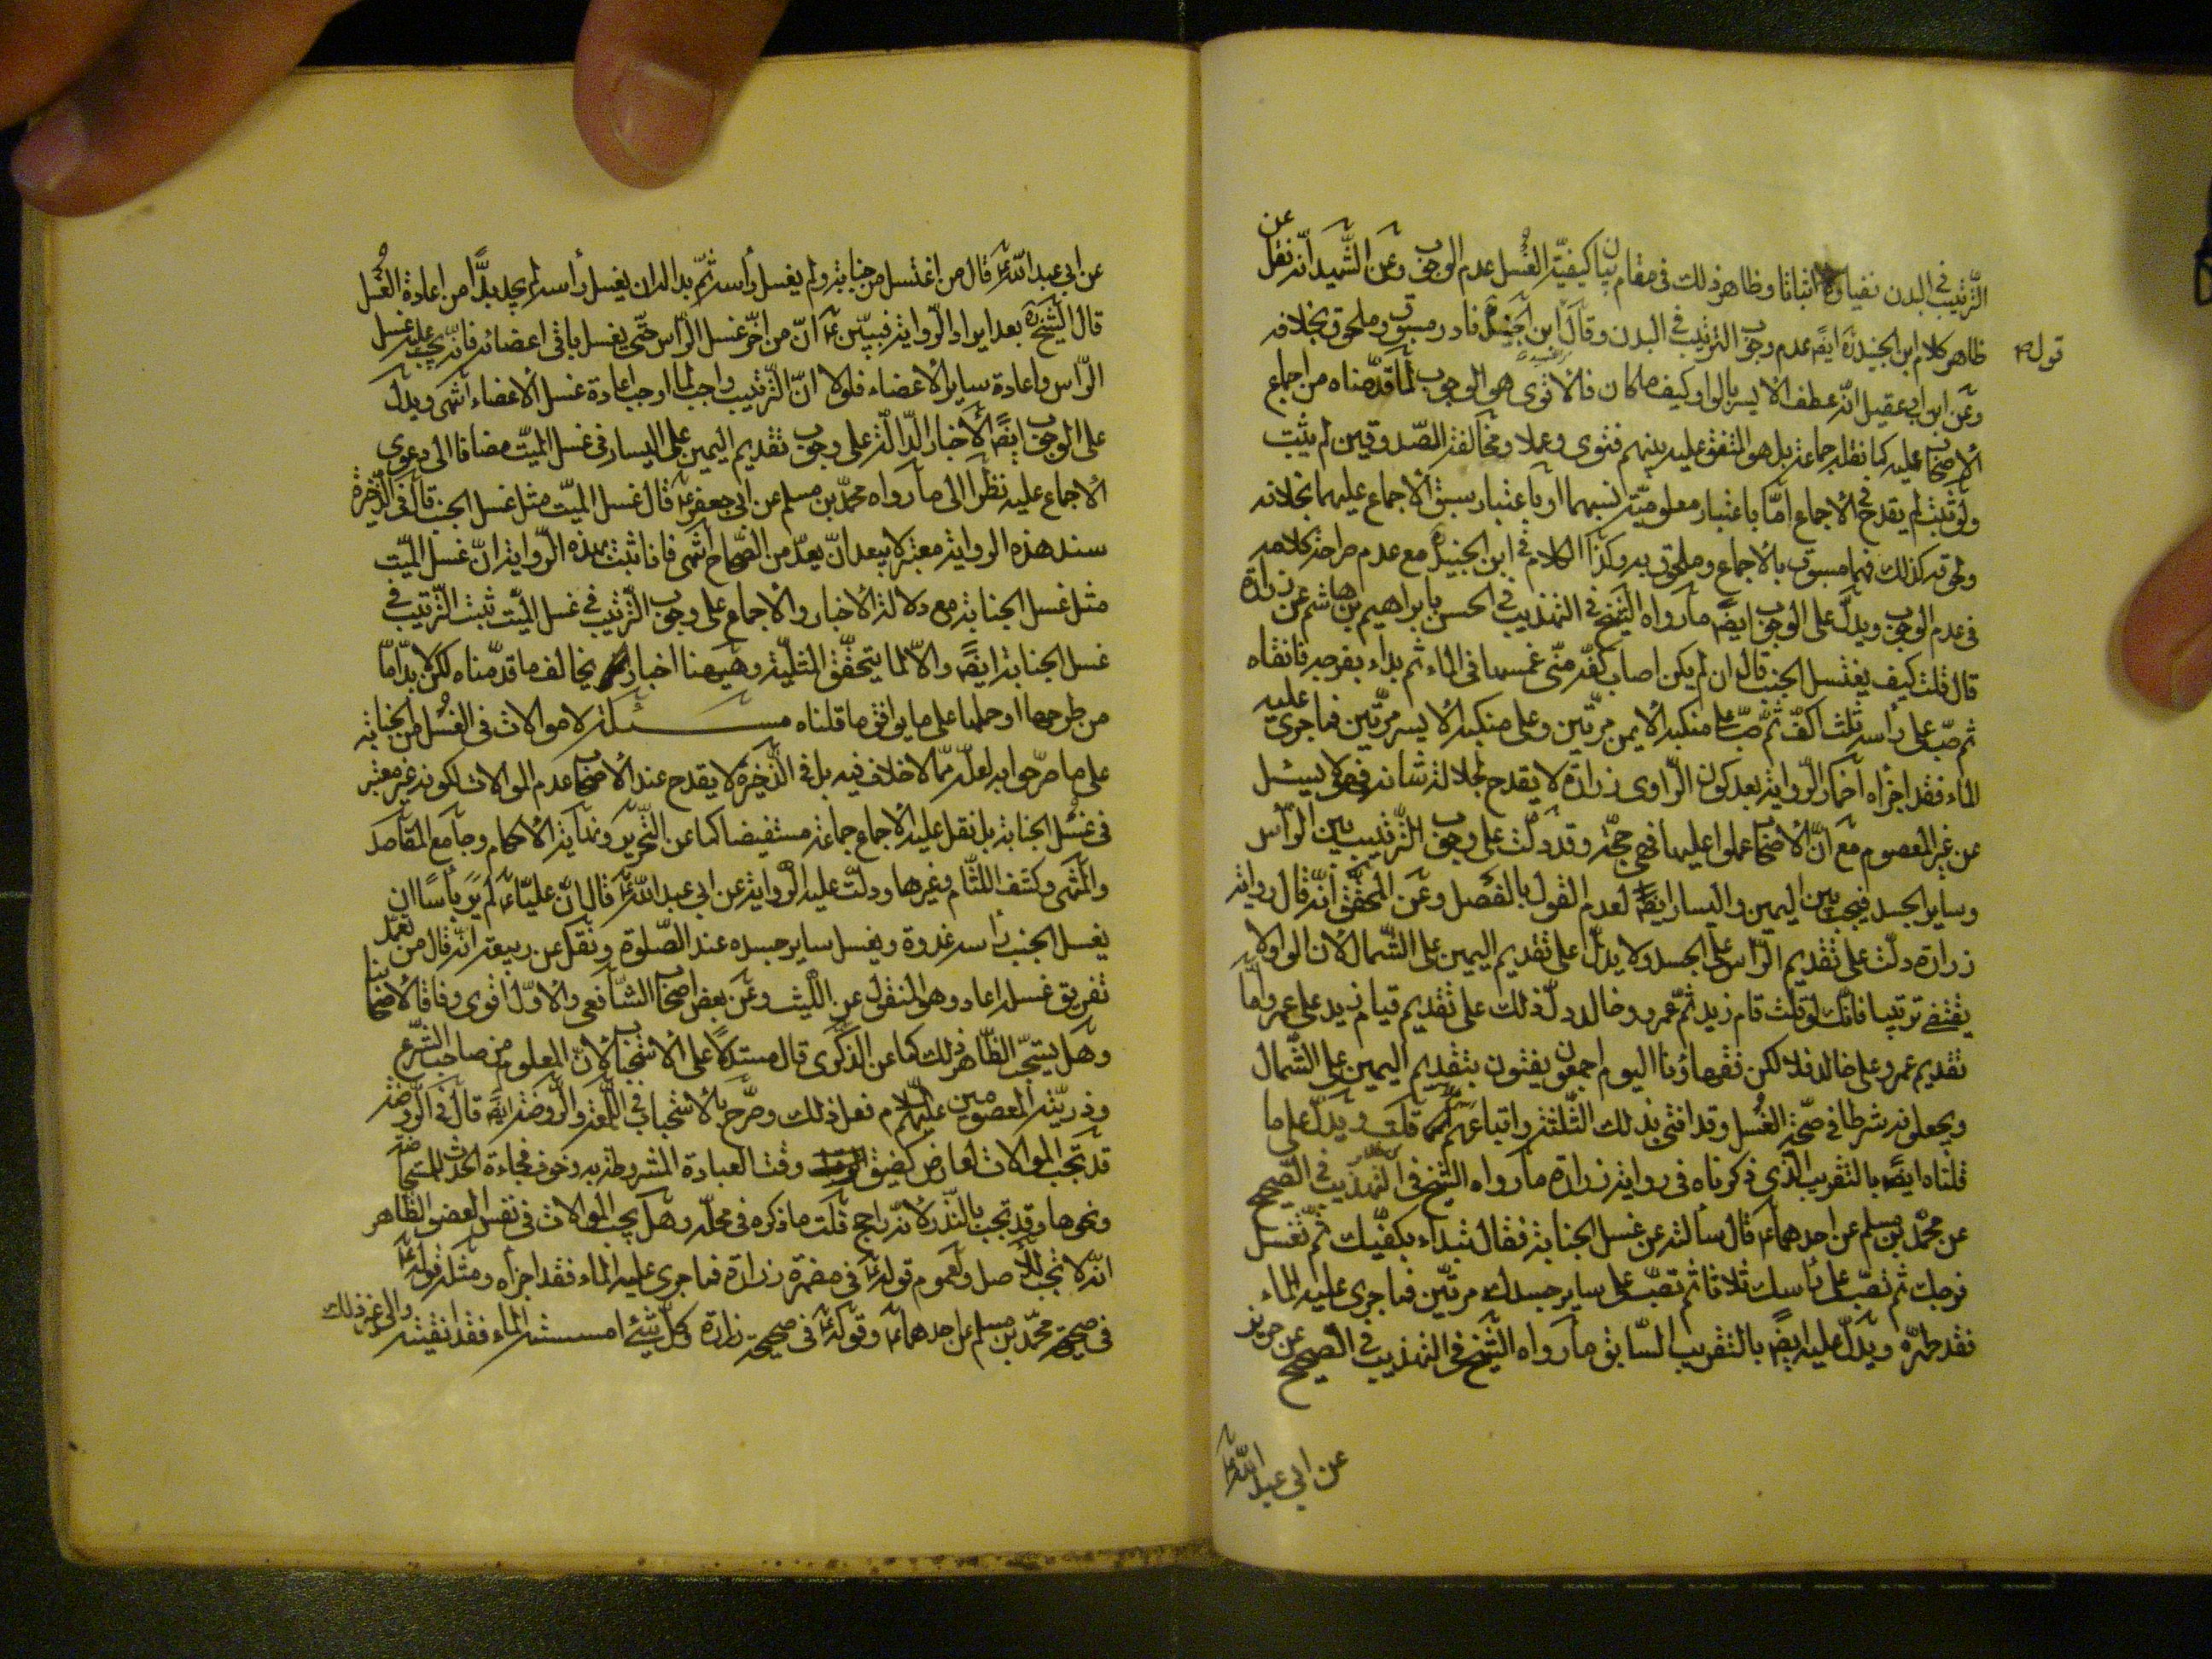 الترتيب في البدن نفيا و اثباتا وظاهر ذلك في مقام بيان كيفية الغسل عدم الوجوب وعن الشهيد انه نقل عن
ظاهر كلام ابن الجنيد ره ايضا عدم وجوب الترتيب في البدن وقال ابن الجنيد نادر مسبوق وملحوق بخلافه
قوله
وعن ابن ابي عقيل انه عطف الايسر بالواو كيف ما كان فالاقوى هو الوجوب لما قدمناه من اجماع
الاصحاب عليه كما نقله جماعة بل هو المتفق عليه بينهم فتوى وعملا ومخالفة الصدوقين لم يثبت
ولو ثبت لم يقدح في الاجماع اما باعتبار معلومية نسبهما او باعتبار سبق الاجماع عليهما بخلافه
ولحوقه كذلك فهما مسبوق بالاجماع وملحوق به وكذا الكلام في ابن الجنيد ره مع عدم صراحة كلامه
في عدم الوجوب ويدل على الوجوب ايضا ما رواه الشيخ في التهذيب في الحسن بابراهيم بن هاشم عن زرارة
قال قلت كيف يغتسل الجنب قال ان لم يكن اصاب كفه منى غمسها في الماء ثم بداء بفرجه فانقاه
ثم صب على رأسه ثلث اكف ثم صب على منكبه الايمن مرتين وعلى منكبه الايسر مرتين فما جرى عليه
الماء فقد اجزأه اضمار الرواية بعد كون الراوي زرارة لا يقدح لجلالة شانه فهو لا يسئل
عن غير المعصوم مع ان الاصحاب عملوا عليها فهي حجة وقد دلت على وجوب الترتيب بين الرأس
وساير الجسد فيجب بين اليمين واليسار ايضا لعدم القول بالفصل وعن المحقق انه قال رواية
زرارة دلت على تقديم الرأس على الجسد ولا يدل على تقديم اليمين على الشمال لان الواو لا
يقتضي ترتيبا فانك لو قلت قام زيد ثم عمرو وخالد دل ذلك على تقديم قيام زيد على عمرو واما
تقديم عمرو على خالد فلا لكن فقهاؤنا اليوم اجمعون يفتون بتقديم اليمين على الشمال
ويجعلونه شرطا في صحة الغسل وقد افتى بذلك الثلثة واتباعهم قلت ويدل على ما
قلناه ايضا بالتقريب الذي ذكرناه في رواية زرارة ما رواه الشيخ في التهذيب في الصحيح
عن محمد بن مسلم عن احدهما ع قال سألته عن غسل الجنابة فقال تبداء بكفيك ثم تغسل
فرجك ثم تصب على رأسك ثلاثا ثم تصب على ساير جسدك مرتين فما جرى عليه الماء
فقد طهره ويدل عليه ايضا بالتقريب السابق ما رواه الشيخ في التهذيب في الصحيح عن حريز
عن ابي عبدالله ع
عن ابي عبد الله ع قال من اغتسل من جنابة ولم يغسل رأسه ثم بدا له ان يغسل رأسه لم يجد بدا من اعادة الغسل
قال الشيخ ره بعد ايراد الرواية فيبين ع ان من اخر غسل الرأس حتى يغسل باقي اعضائه فانه يجب عليه غسل
الرأس واعادة ساير الاعضاء فلولا ان الترتيب واجب لما اوجب اعادة غسل الاعضاء انتهى ويدل
على الوجوب ايضا الاخبار الدالة على وجوب تقديم اليمين على اليسار في غسل الميت مضافا الى دعوى
الاجماع عليه نظرا الى ما رواه محمد بن مسلم عن ابي جعفر ع قال غسل الميت مثل غسل الجنب قال في الذخيرة
سند هذه الرواية معتبر لا يبعد ان يعد من الصحاح انتهى فاذا ثبت بهذه الرواية ان غسل الميت
مثل غسل الجنابة مع دلالة الاخبار والاجماع على وجوب الترتيب في غسل الميت ثبت الترتيب في
غسل الجنابة ايضا والا لما يتحقق المثلية وهيهنا اخبار يخالف ما قدمناه لكن لا بد اما
من طرحها او حملها على ما يوافق ما قلناه مسئلة لا موالات في الغسل من الجنابة
على ما صرحوا به لعله مما لا خلاف فيه بل في الذخيرة لا يقدح عند الاصحاب عدم الموالات لكونه غير معتبر
في غسل الجنابة بل نقل عليه الاجماع جماعة مستفيضا كما عن التحرير ونهاية الاحكام وجامع المقاصد
والمنتهى وكشف اللثام وغيرها ودلت عليه الرواية عن ابي عبد الله ع قال ان عليا ع لم ير بأسا ان
يغسل الجنب رأسه غدوة ويغسل ساير جسده عند الصلوة ونقل عن ربيعة انه قال من تعمد
تفريق غسله اعاد وهو المنقول عن الليث وعن بعض اصحاب الشافعي والاول اقوى وفاقا لاصحابنا
وهل يستحب الظاهر ذلك كما عن الذكرى قال مستدلا على الاستحباب لان المعلوم من صاحب الشرع
وذريته المعصومين عليهم السلام فعل ذلك وصرح بالاستحباب في اللمعة والروضة ايضا قال في الروضة
قد تجب الموالات لعارض كضيق وقت العبادة المشروطة به وخوف فجاءة الحدث للمستحاضة
ونحوها وقد تجب بالنذر لانه راجح قلت ما ذكره في محله وهل يجب الموالات في نفس العضو الظاهر
انه لا تجب للاصل ولعموم قوله ع في مضمرة زرارة فما جرى عليه الماء فقد اجزأه ومثله قوله ع
في صحيحة محمد بن مسلم عن احدهما ع وقوله ع في صحيحة زرارة وكل شيء امسسته الماء فقد انقيته والى غير ذلك